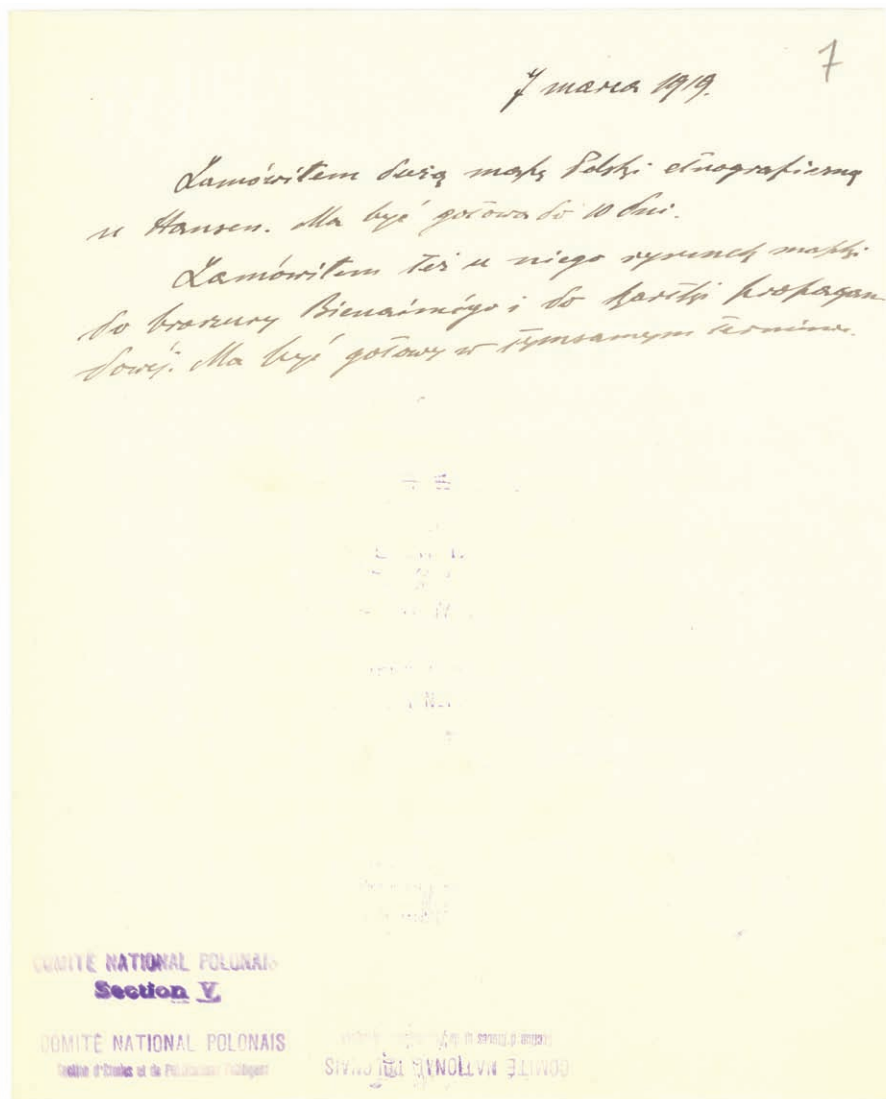 7
7 marca 1919.
Zamówiłem dużą mapę Polski etnograficzną
u Hansen. Ma być gotowa do 10 dni.
Zamówiłem też u niego rysunek mapki
do broszury Bienaimégo i do kartki propagan-
dowej. Ma być gotowy w tymsamym terminie.
COMITÉ NATIONAL POLONAIS
Section V
COMITÉ NATIONAL POLONAIS
Section d'Etudes et de Publications Politiques
COMITÉ NATIONAL POLONAIS